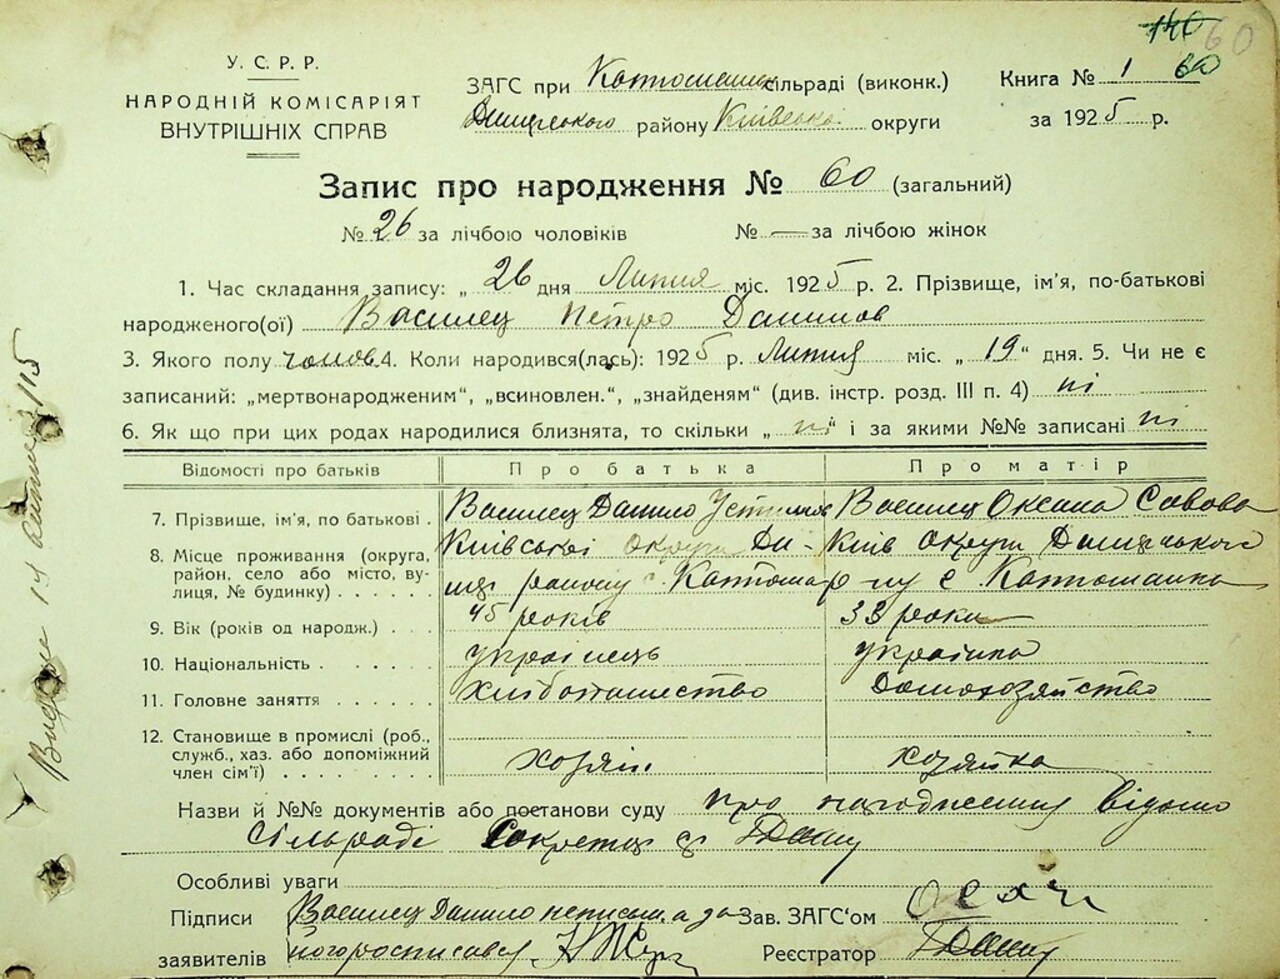 140 60
60
У. С. Р. Р.
НАРОДНІЙ КОМІСАРІЯТ
ВНУТРІШНІХ СПРАВ
ЗАГС при сільраді (виконк.)
району Київської округи
Книга № 1
за 1925 р.
Запис про народження № 60 (загальний)
№ 26 за лічбою чоловіків № — за лічбою жінок
1. Час складання запису: „ 26 дня Липня міс. 1925 р. 2. Прізвище, ім'я, по-батькові
народженого(ої) Василец Петро Данилов
3. Якого полу чолов. 4. Коли народився(лась): 1925 р. Липня міс. „ 19 “ дня. 5. Чи не є
записаний: „мертвонародженим“, „всиновлен.“, „знайденям“ (див. інстр. розд. III п. 4) ні
6. Як що при цих родах народилися близнята, то скільки „ ні “ і за якими №№ записані ні
Відомості про батьків Про батька Про матір
7. Прізвище, ім'я, по батькові . Василец Данило Устимов Василец Оксана Савова
8. Місце проживання (округа, Київської округи Ди- Київ округи
район, село або місто, ву- району с.
лиця, № будинку) . . . . . .
9. Вік (років од народж.) . . . 45 років 33 роки
10. Національність . . . . . . українець українка
11. Головне заняття . . . . . . хлібопашество домохозяйство
12. Становище в промислі (роб.,
служб., хаз. або допоміжний хозяїн. хозяйка
член сім'ї) . . . . . . . . .
Назви й №№ документів або постанови суду про народження відомо
Сільраді
Особливі уваги
Підписи Василец Данило неписьм. а за Зав. ЗАГС'ом
заявителів його росписався Реєстратор